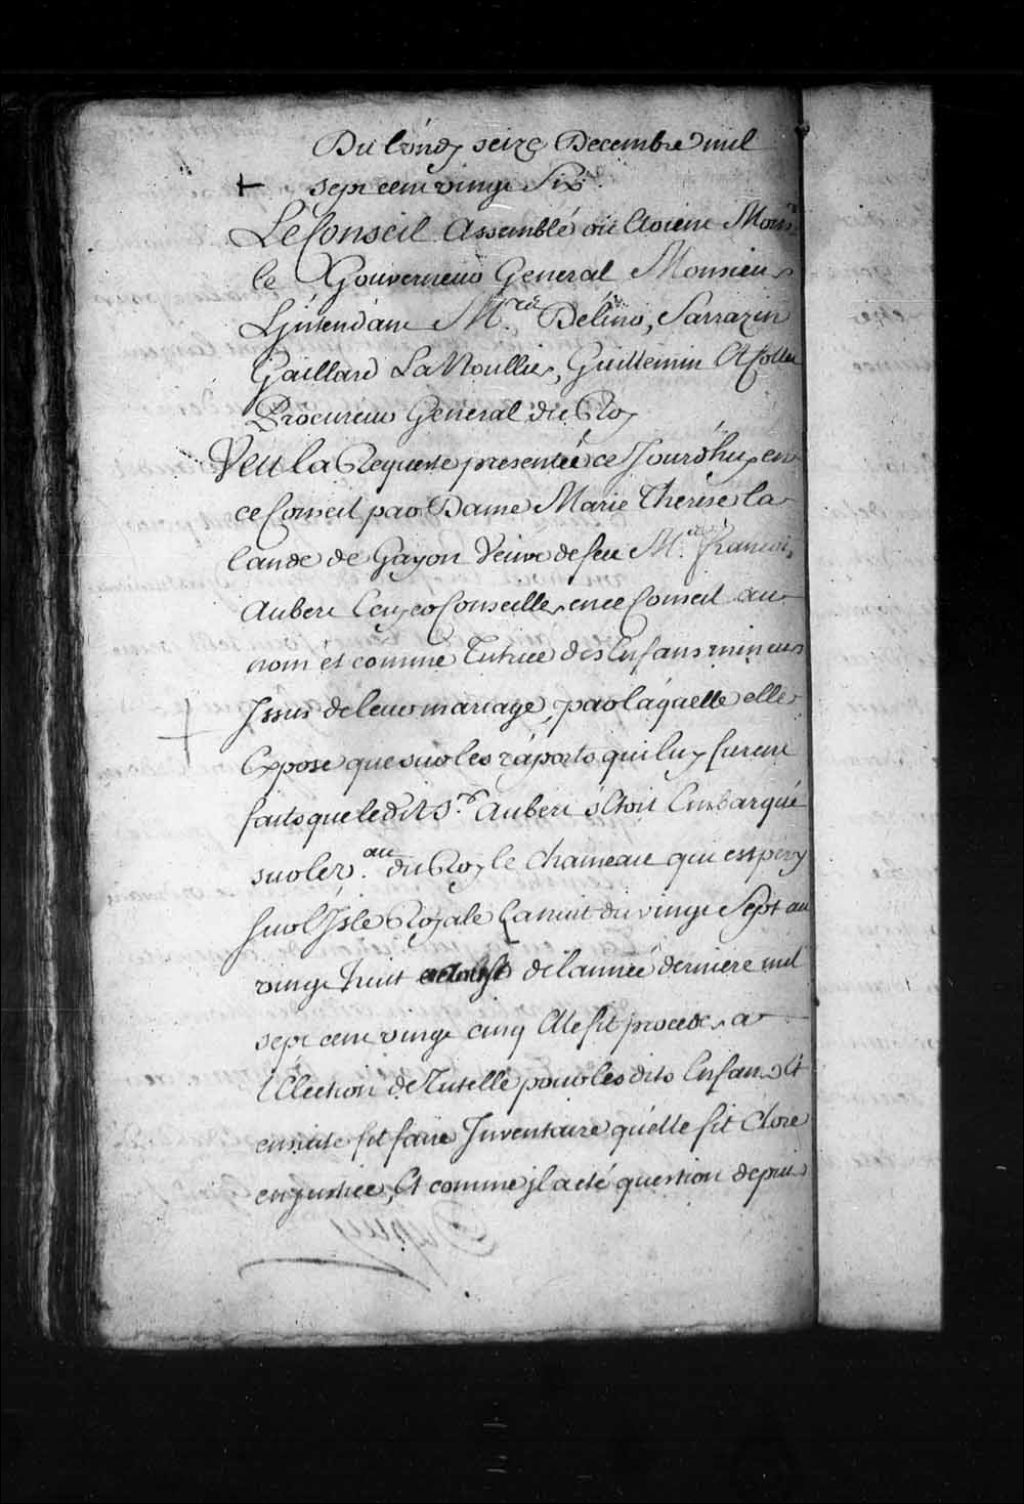 Du Lundy seize Decembre mil
sept cent vingt Six.
Le Conseil Assemblé où Etoient Mons.
le Gouverneur General Monsieur
L'jntendant M.rs Delino, Sarrazin
Gaillard La Noullier, Guillemin Et Collet
Procureur General du Roy
Veu la Requeste presentée ce Jourdhuy en
ce Conseil par Dame Marie Therese la
lande de Gayon Veuve de feu M.e francois
Aubert Conseiller en ce Conseil au
nom et comme Tutrice des Enfans mineurs
Jssus de leur mariage, par laquelle elle
Expose que sur les raports qui luy furent
faits que ledit S.r Aubert s'Etoit Embarqué
sur le v.au du Roy le Chameau qui est pery
sur l'Jsle Royale La nuit du vingt Sept au
vingt huit de l'année derniere mil
sept cent vingt cinq Elle fit proceder a
l'Election de Tutelle pour les dits Enfans Et
ensuite fit faire Jnventaire qu'elle fit Clore
en justice, Et comme jl a eté question depuis